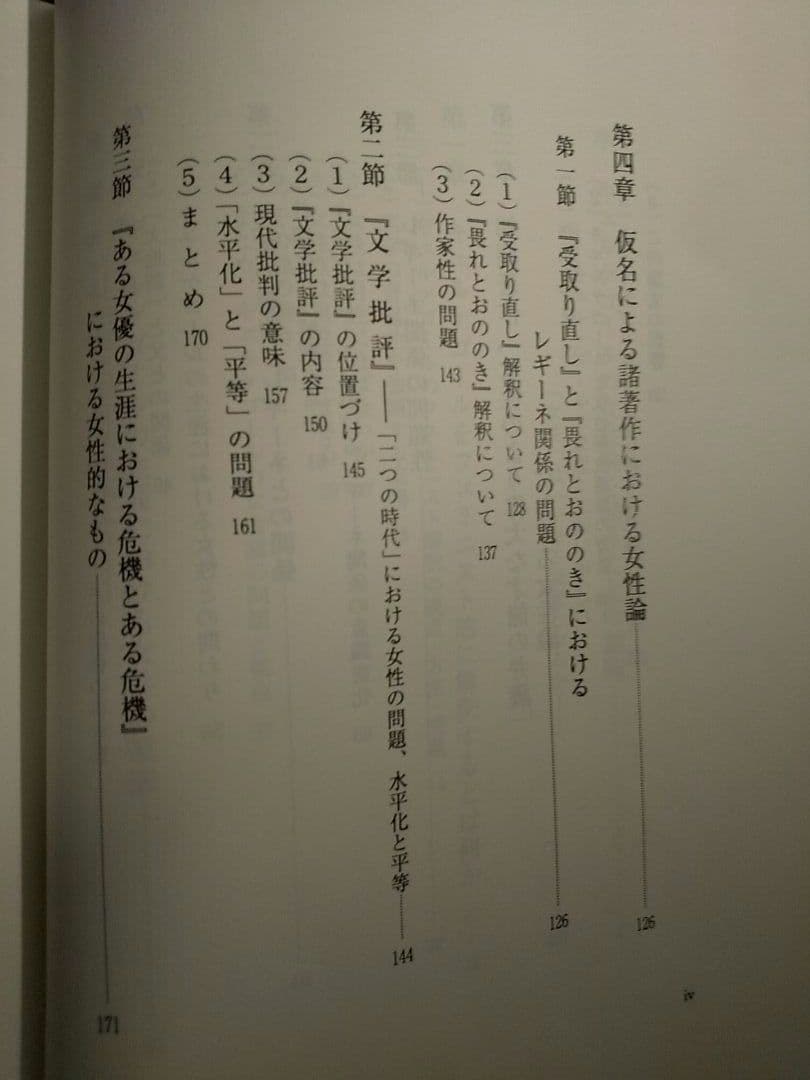 第四章　仮名による諸著作における女性論……126
第一節　『受取り直し』と『畏れとおののき』における
レギーネ関係の問題……126
（1）『受取り直し』解釈について　128
（2）『畏れとおののき』解釈について　137
（3）作家性の問題　143
第二節　『文学批評』――「二つの時代」における女性の問題、水平化と平等……144
（1）『文学批評』の位置づけ　145
（2）『文学批評』の内容　150
（3）現代批判の意味　157
（4）「水平化」と「平等」の問題　161
（5）まとめ　170
第三節　『ある女優の生涯における危機とある危機』
における女性的なもの……171
iv